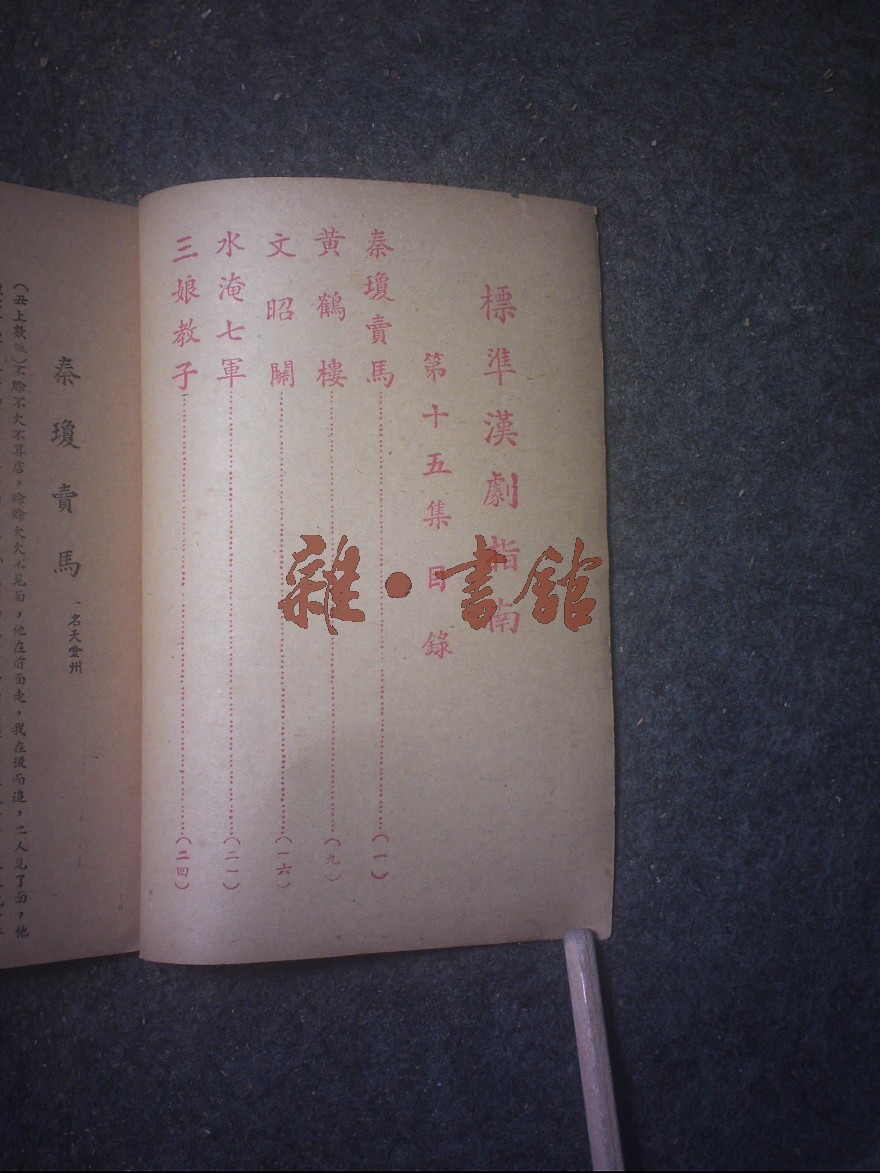 標準漢劇指南
第十五集目錄
秦瓊賣馬(一)
黄鶴樓(九)
文昭關(一六)
水淹七軍(二一)
三娘教子(二四)
雜•書館
秦瓊賣馬
一名天堂州
不賒不欠不算店，賒賒欠欠不見面，他在前面走，我在後面追，二人見了面，他